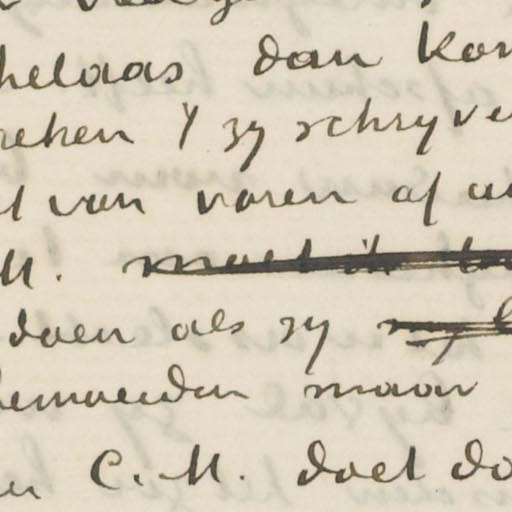 helaas dan kon
reken zy schryve
t van voren af a
M. moet ik
doen als zy
vermoeden maar
C.M. doet do